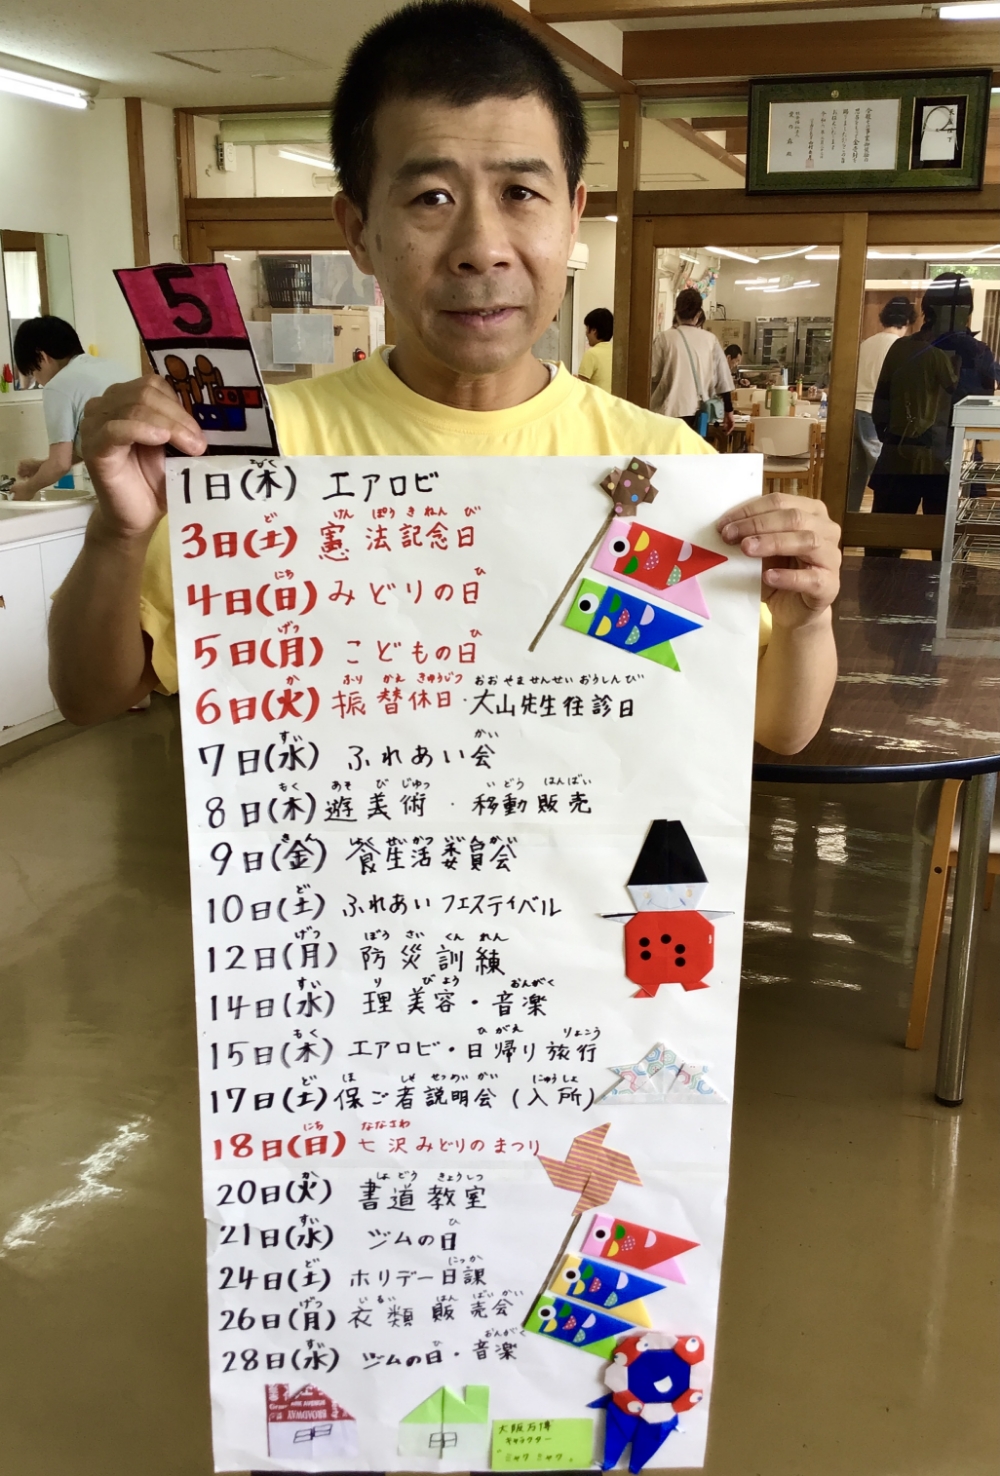 5
1日(木) エアロビ
3日(土) 憲法記念日
4日(日) みどりの日
5日(月) こどもの日
6日(火) 振替休日・大山先生往診日
7日(水) ふれあい会
8日(木) 遊美術・移動販売
9日(金) 食生活委員会
10日(土) ふれあいフェスティバル
12日(月) 防災訓練
14日(水) 理美容・音楽
15日(木) エアロビ・日帰り旅行
17日(土) 保ご者説明会(入所)
18日(日) 七沢みどりのまつり
20日(火) 書道教室
21日(水) ジムの日
24日(土) ホリデー日課
26日(月) 衣類販売会
28日(水) ジムの日・音楽
BROADWAY
大阪万博
キャラクター
"ミャクミャク"